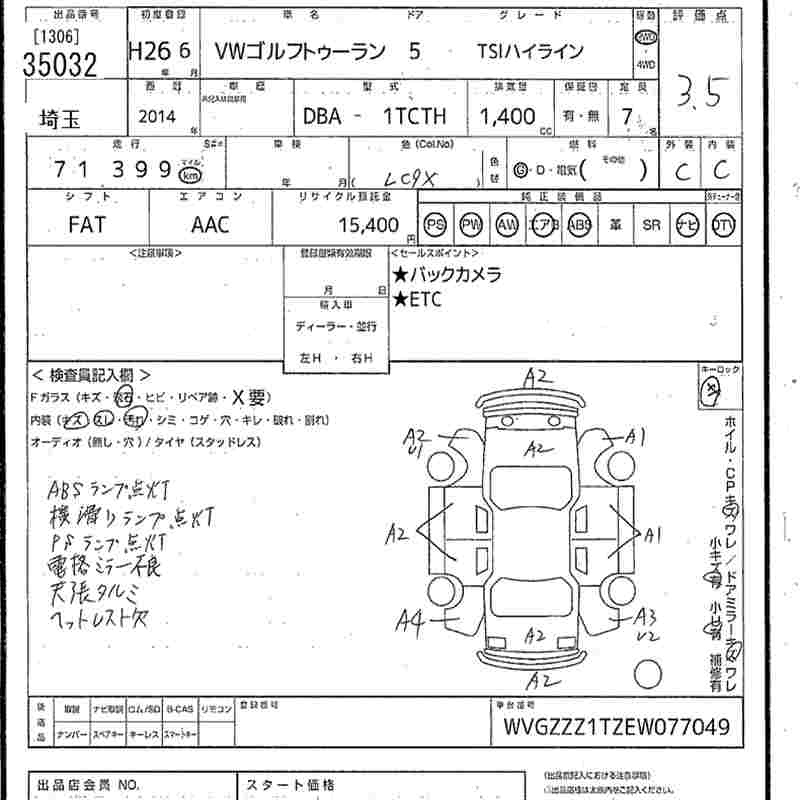 出品番号 初度登録 車名 ドア グレード 駆動 評価点
[1306]
35032 H26 6 VWゴルフトゥーラン 5 TSIハイライン 2WD 3.5
年 月 4WD
西暦 車歴 型式 排気量 定員
埼玉 2014 年 DBA - 1TCTH 1,400 CC 有・無 7 名
走行 S#※ 車検 色(Col.No) 燃料 外装 内装
71 399 マイル km 年 月 ( LC9X ) 色替 G・D・電気( その他 ) C C
シフト エアコン リサイクル預託金 純正装備品
FAT AAC 15,400 円 PS PW AW エアB ABS 革 SR ナビ DTV
<注意事項> <セールスポイント>
★バックカメラ
月 日 ★ETC
輸入車
ディーラー・並行
左H ・ 右H
<検査員記入欄> キーロック
Fガラス(キズ・飛石・ヒビ・リペア跡・X要)
内装(キズ・スレ・汚れ・シミ・コゲ・穴・キレ・破れ・割れ)
オーディオ(無し・穴)/タイヤ(スタッドレス)
A2
A2
A2 U1 A1
ABSランプ点灯
横滑りランプ点灯
PSランプ点灯
電格ミラー不良
天張タルミ
ヘットレスト欠
A2 A1
A4 A3 U2
A2
A2
ホイル・CPキズワレ/ドアミラーキズワレ
小キズ有 小凹有 補修有
後送品 取説 ナビ取説 ロム/SD B-CAS リモコン 登録番号 車台番号
ナンバー スペアキー キーレス スマートキー WVGZZZ1TZEW077049
出品店会員 NO. スタート価格 (出品票記入における注意事項)